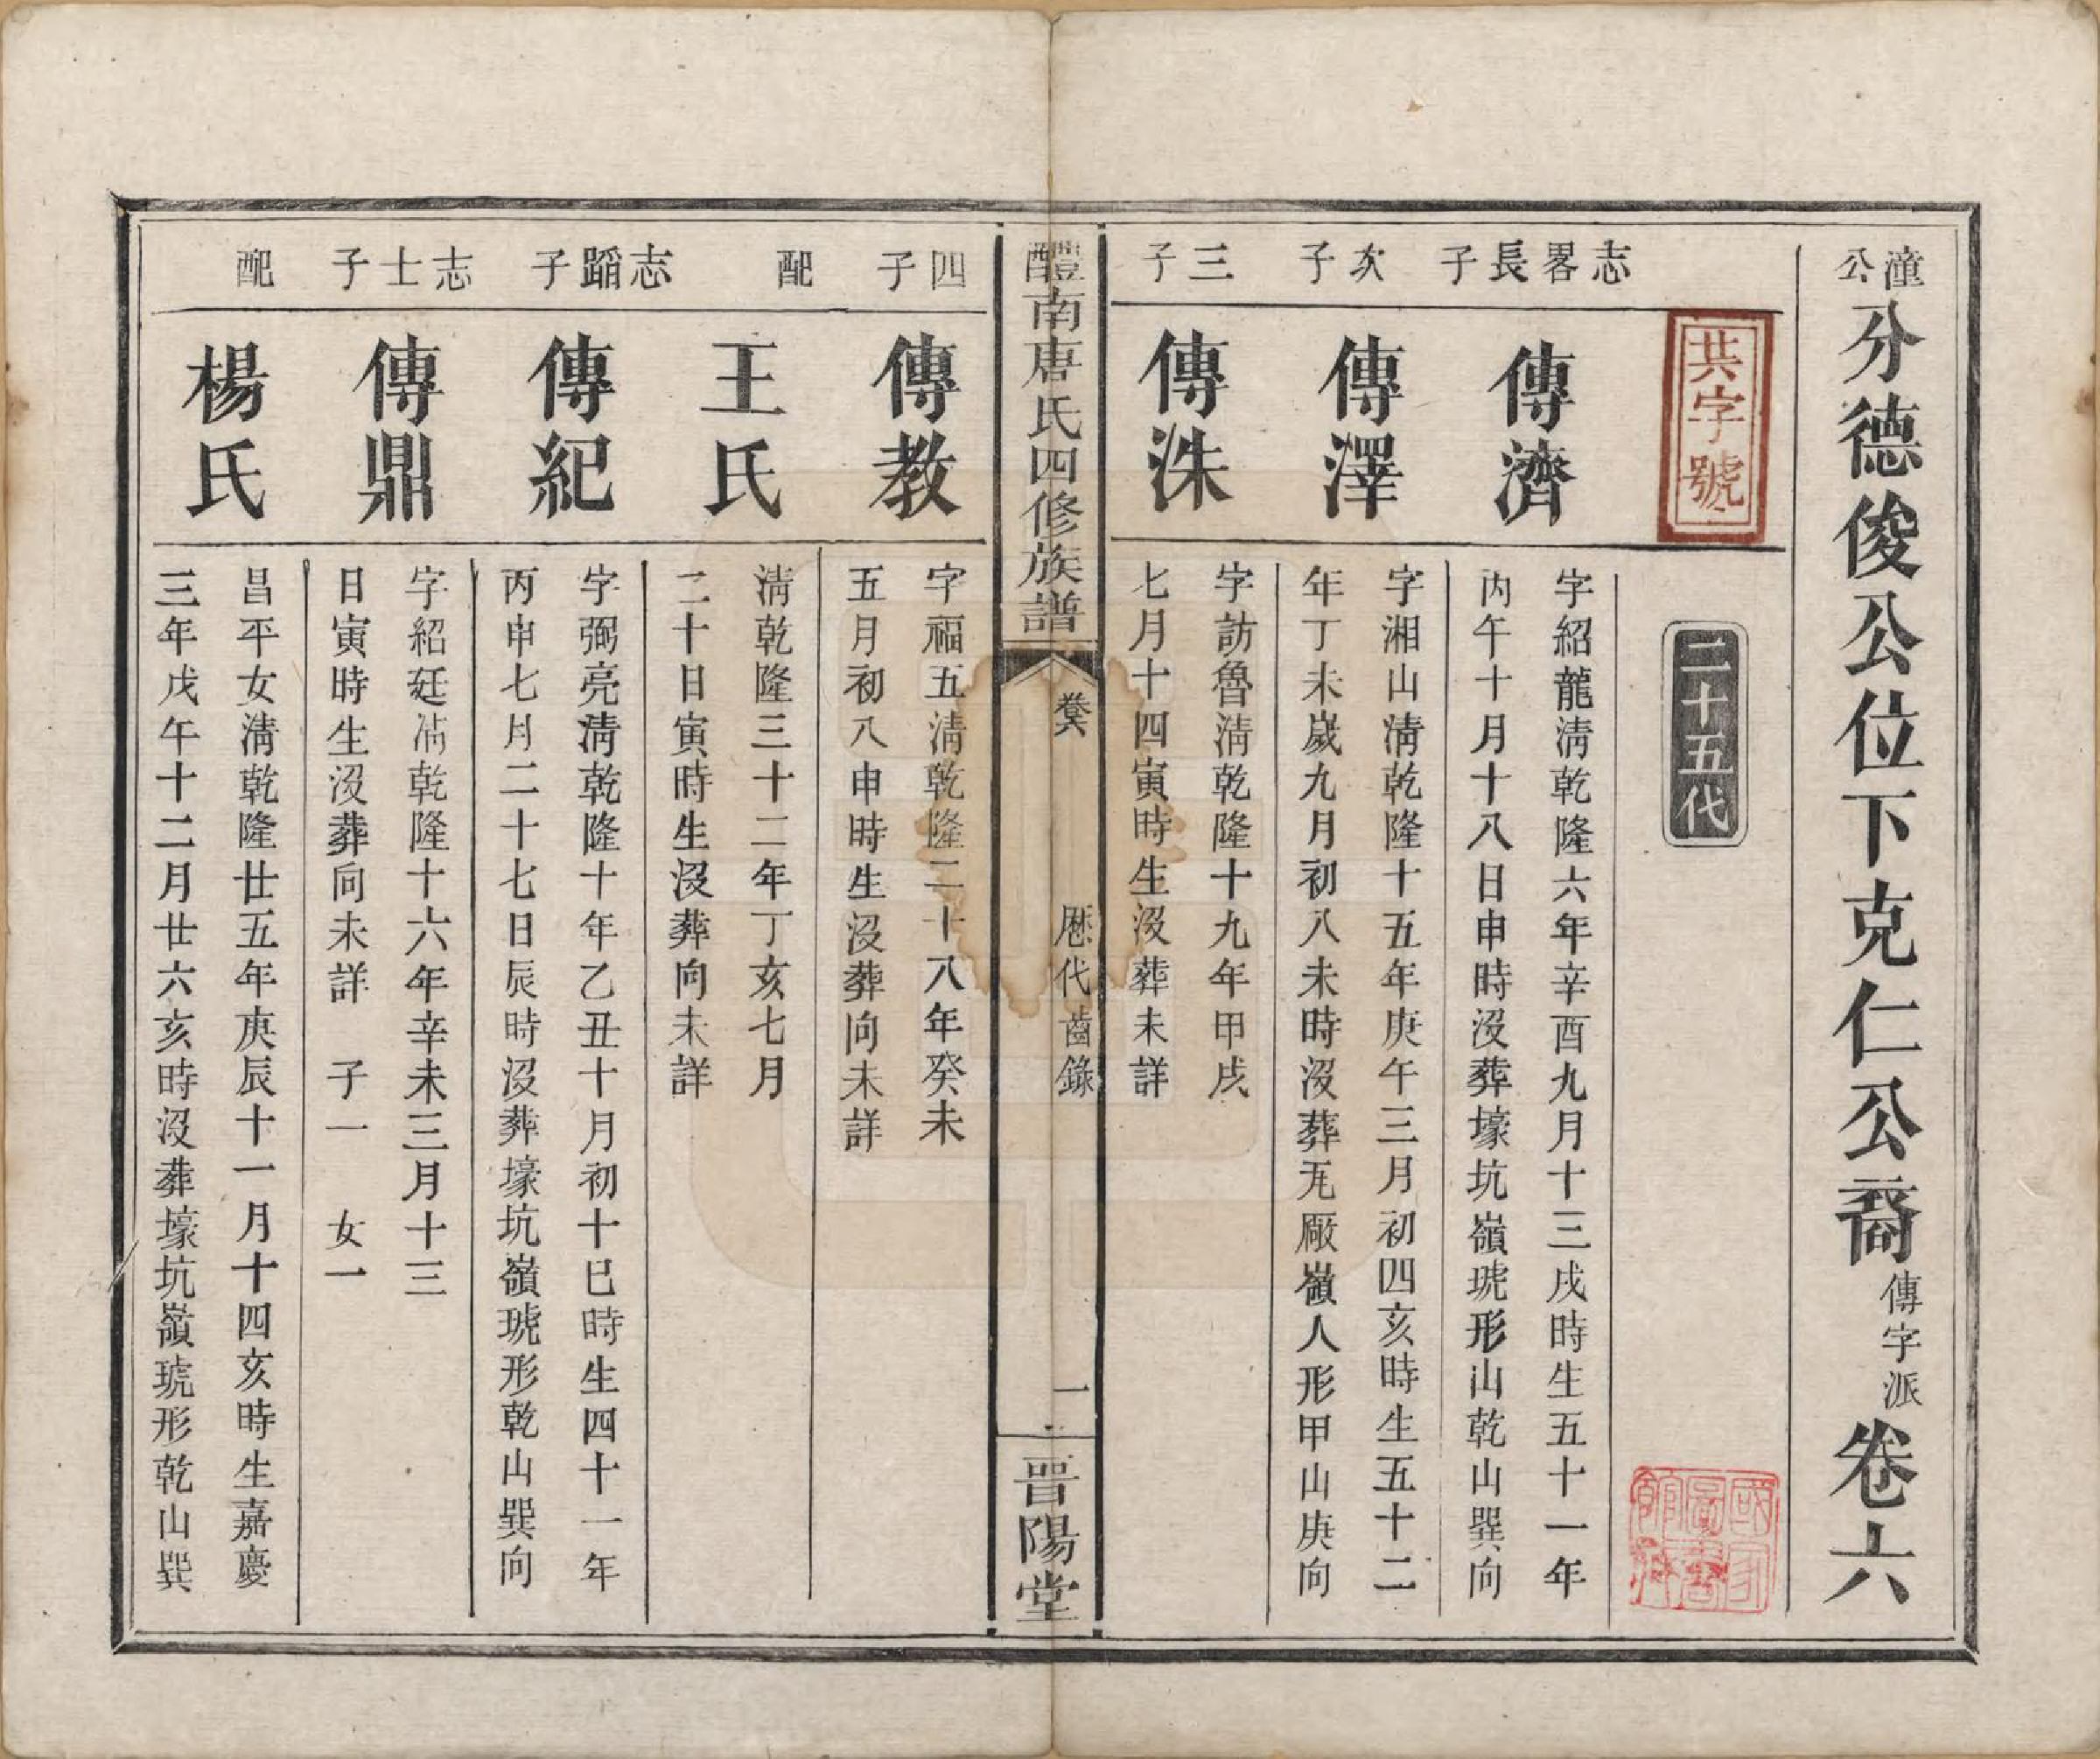 潼公分德俊公位下克仁公裔傳字派卷六
共字號
二十五代
志畧長子
傳濟
字紹龍淸乾隆六年辛酉九月十三戌時生五十一年
丙午十月十八日申時沒葬壕坑嶺琥形山乾山巽向
次子
傳澤
字湘山淸乾隆十五年庚午三月初四亥時生五十二
年丁未歲九月初八未時沒葬旡厰嶺人形甲山庚向
三子
傳洙
字訪魯淸乾隆十九年甲戌
七月十四寅時生沒葬未詳
醴南唐氏四修族譜
卷六
歷代齒錄
一
晋陽堂
四子
傳教
字福五淸乾隆二十八年癸未
五月初八申時生沒葬向未詳
配
王氏
淸乾隆三十二年丁亥七月
二十日寅時生沒葬向未詳
志蹈子
傳紀
字弼亮淸乾隆十年乙丑十月初十巳時生四十一年
丙申七月二十七日辰時沒葬壕坑嶺琥形乾山巽向
志士子
傳鼎
字紹廷淸乾隆十六年辛未三月十三
日寅時生沒葬向未詳 子一 女一
配
楊氏
昌平女淸乾隆廿五年庚辰十一月十四亥時生嘉慶
三年戊午十二月廿六亥時沒葬壕坑嶺琥形乾山巽